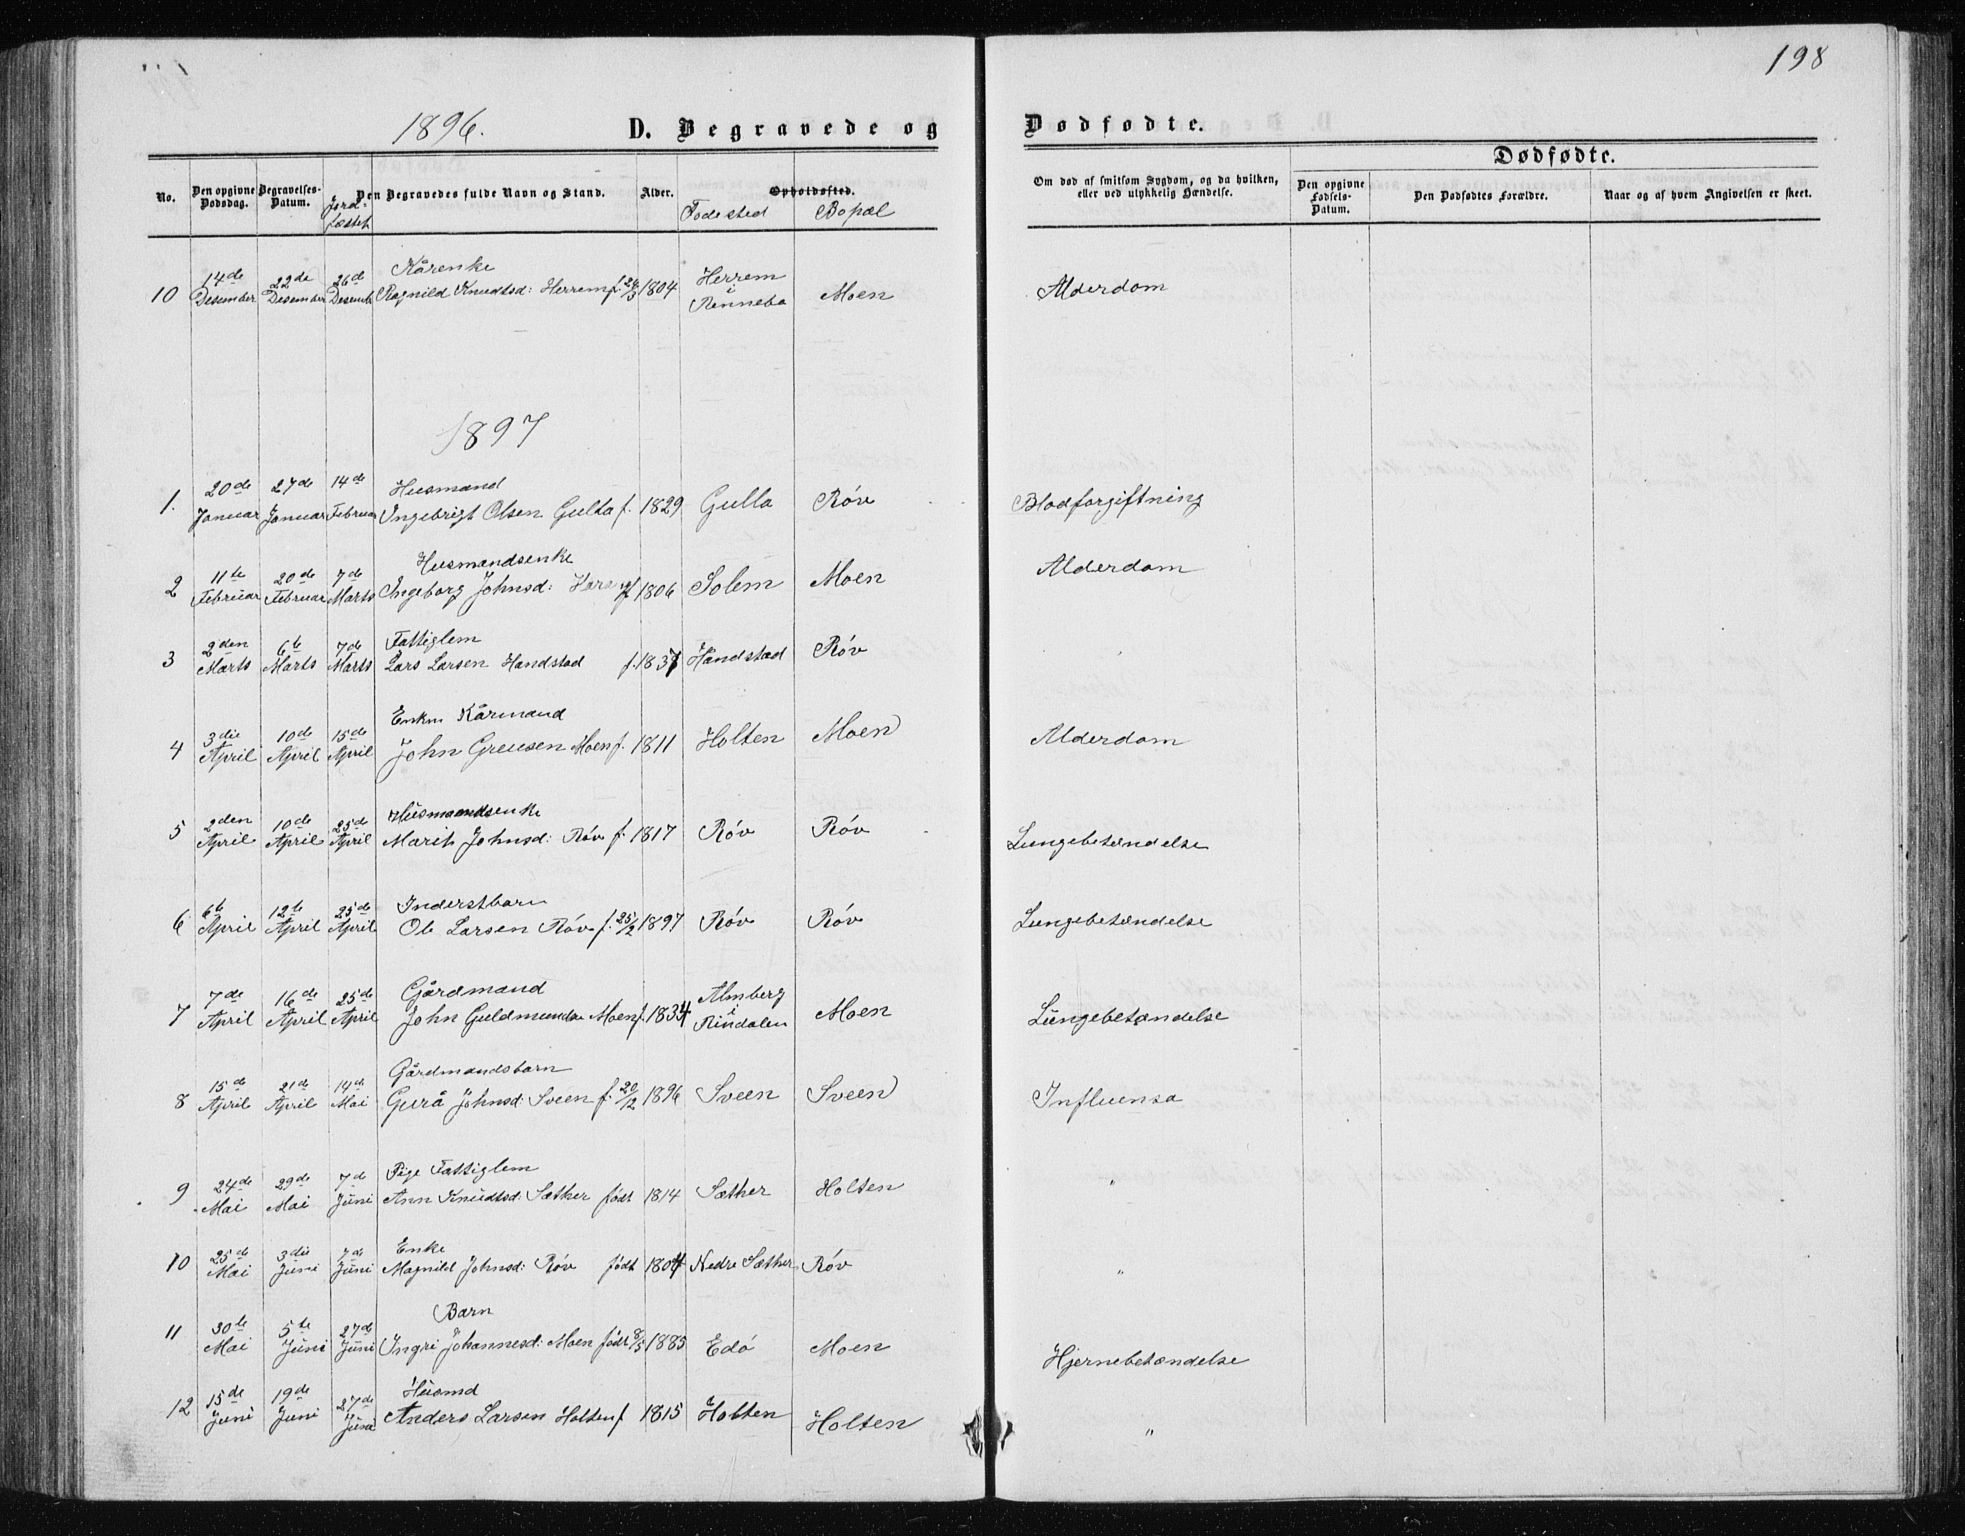 198
1896.
D. Begravede og
Dødfødte.
No.
Den opgivne Dødsdag.
Begravelses-Datum.
Jord-fæstet
Den Begravedes fulde Navn og Stand.
Alder.
Opholdssted.
Fødested
Bopæl
Om død af smitsom Sygdom, og da hvilken, eller ved ulykkelig Hændelse.
Dødfødte.
Den opgivne Fødsels-Datum.
Den Dødfødtes Forældre.
Naar og af hvem Angivelsen er skeet.
10 14de Desember 22de Desember 26de Desemb Kårenke Ragnild Knudtsd: Herrem f. 29/3 1804 Herrem i Renneba Moen Alderdom
1897
1. 20de Januar 27de Januar 14de Februar Husmand Ingebrigt Olsen Gulla f. 1829 Gulla Røv Blodforgiftning
2 11te Februar 20de Februar 7de Marts Husmandsenke Ingeborg Johnsd: f 1806 Solem Moen Alderdom
3 2den Marts 6te Marts 7de Marts Fattiglem Lars Larsen Handstad f. 1837 Handstad Røv
4 3die April 10de April 15de April Enkm Kårmand John Moen f. 1811 Holten Moen Alderdom
5 2den April 10de April 25de April Husmandsenke Marit Johnsd: Røv f. 1817 Røv Røv Lungebetændelse
6 6te April 12te April 25de April Inderstbarn Ole Larsen Røv f. 25/2 1897 Røv Røv Lungebetændelse
7 7de April 16de April 25de April Gårdmand John Guldmunds Moen f. 1834 Almberg i Rindalen Moen Lungebetændelse
8 15de April 21de April 14de Mai Gårdmandsbarn Gurå Johnsd: Sveen f. 20/12 1896 Sveen Sveen Influensa
9 24de Mai 29de Mai 7de Juni Pige Fattiglem Ann Knudtsd: Sæther født 1814 Sæther Holten "
10 25de Mai 3die Juni 7de Juni Enke Magnild Johnsd: Røv født 1804 Nedre Sæther Røv "
11 30te Mai 5te Juni 27de Juni Barn Ingri Johannesd: Moen født 8/5 1885 Edø Moen Hjernebetændelse
12 15de Juni 19de Juni 27de Juni Husmd Anders Larsen Holten f 1815 Holten Holten "